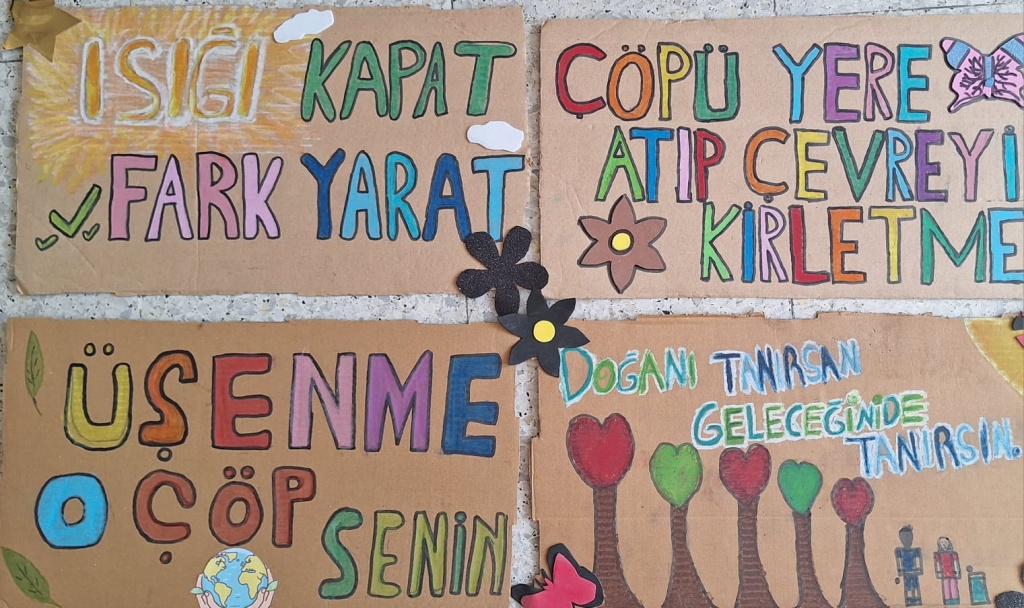 IŞIĞI KAPAT
FARK YARAT
ÇÖPÜ YERE
ATIP ÇEVREYİ
KİRLETME
ÜŞENME
O ÇÖP
SENİN
DOĞANI TANIRSAN
GELECEĞİNİDE
TANIRSIN.